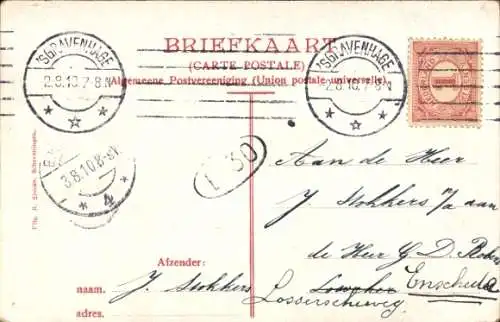 BRIEFKAART
(CARTE POSTALE)
Algemeene Postvereeniging (Union postale universelle).
'SGRAVENHAGE
2.8.10.7-8N
'SGRAVENHAGE
2.8.10.7-8N
1
3.8.10.8-9V
4
Aan de Heer
J. Stokkers p/a aan
de Heer G. D.
Enschede
Losserscheweg
Afzender:
naam. J. Stokkers
adres.